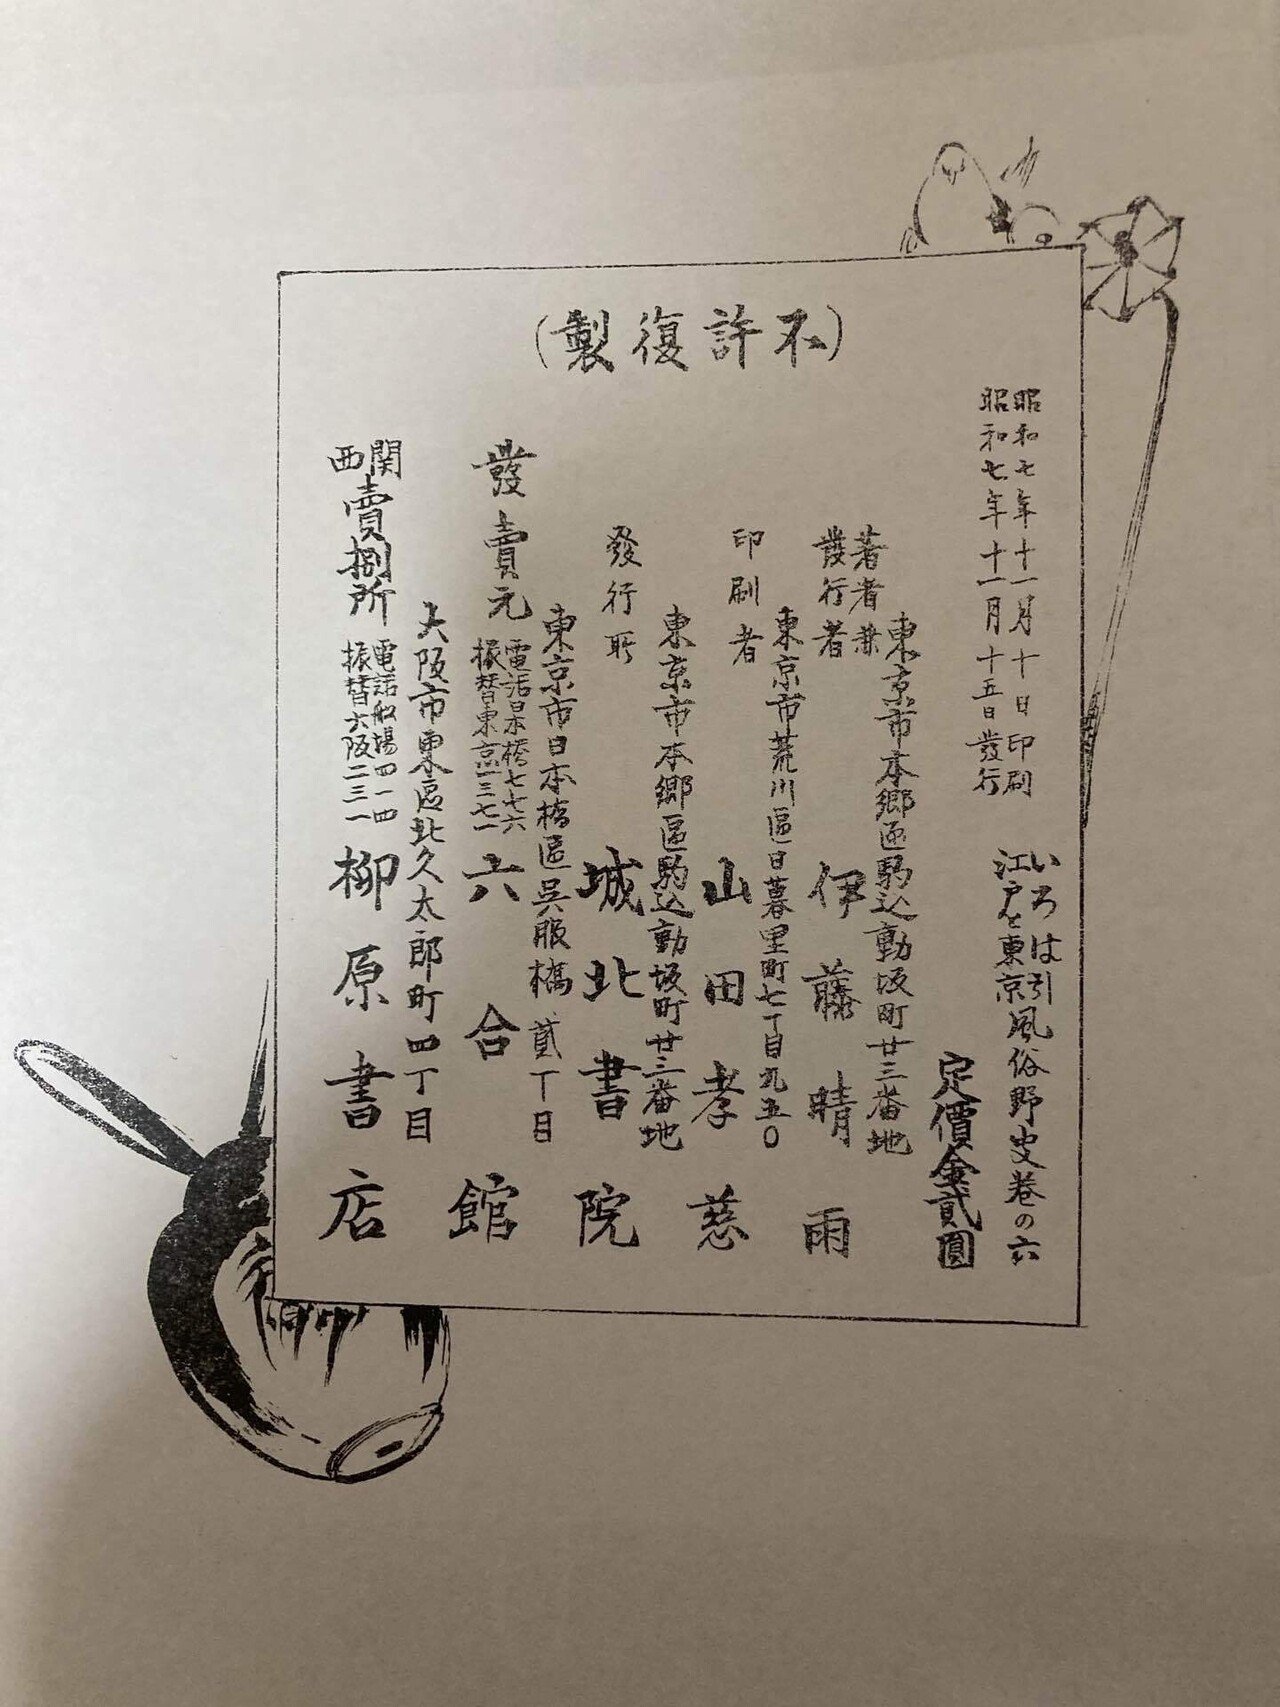 (不許復製)
昭和七年十一月十日印刷
昭和七年十一月十五日發行
いろは引
江戸と東京
風俗野史巻の六
定價金貳圓
東京市本郷區駒込動坂町廿三番地
著者兼
發行者
伊藤晴雨
東京市荒川區日暮里町七丁目九五〇
印刷者
山田孝慈
東京市本郷區駒込動坂町廿三番地
發行所
城北書院
東京市日本橋區呉服橋貳丁目
發賣元
電話日本橋七七六
振替東京一三七一
六合館
大阪市東區北久太郎町四丁目
関西
賣捌所
電話船場四一四
振替大阪二三一
柳原書店